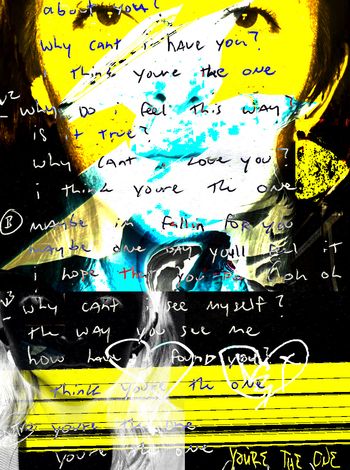 about you?
Why cant i have you?
think youre the one
V2 Why do i feel this way
is it true?
Why cant i love you?
i think youre the one
B maybe im fallin for you
maybe one day you'll feel it
i hope that you do ooh oh
V3 Why cant i see myself?
the way you see me
how have i found you?
think youre the one
youre the one
youre the one
YOU'RE THE ONE